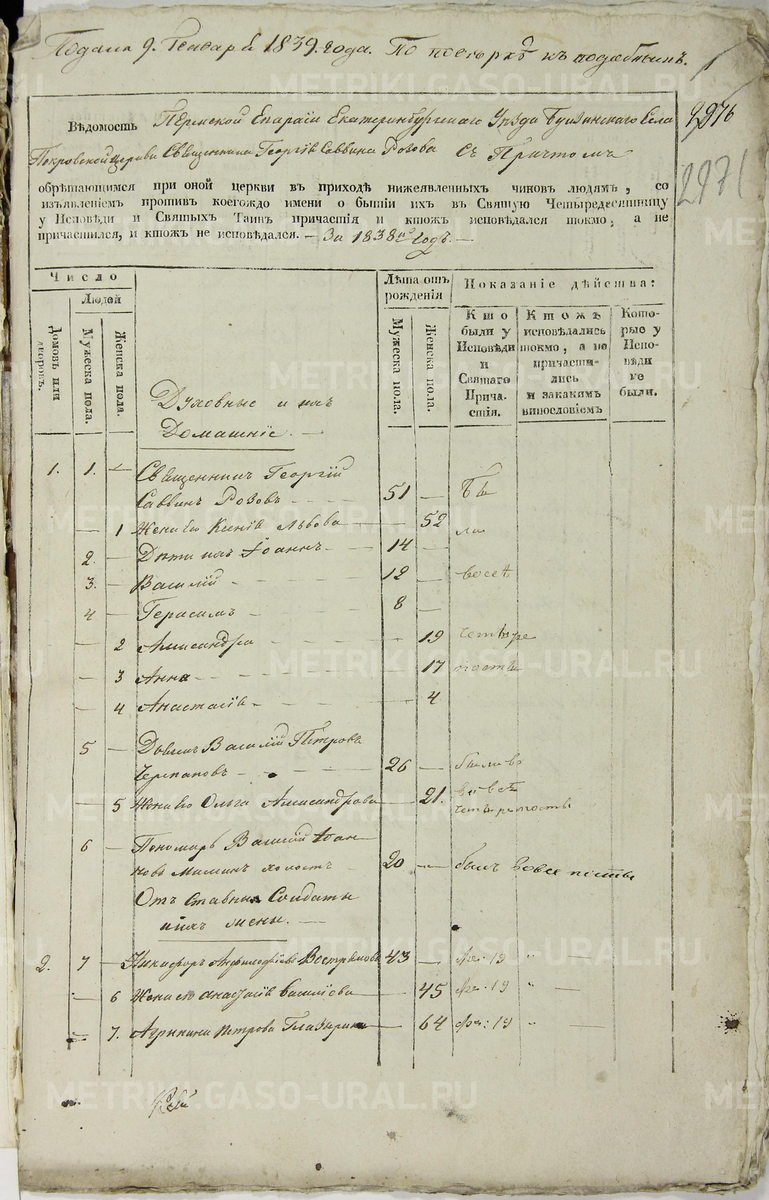 Подана 9. Генваря 1839. года. По
2976
2971
Вѣдомость Пермской Епархіи Екатеринбургскаго Уѣзда Села
Покровской церкви Священника Георгія Саввина Розова съ Причтомъ
обрѣтающимся при оной церкви въ приходѣ нижеявленныхъ чиновъ людямъ, со
изъявленіемъ противъ коегождо имени о бытіи ихъ въ Святую Четыредесятницу
у Исповѣди и Святыхъ Таинъ причастія и ктожъ исповѣдался токмо, а не
причастился, и ктожъ не исповѣдался. – За 1838й годъ. –
Число
Людей
Домовъ или дворовъ.
Мужеска пола.
Женска пола.
Лѣта отъ рожденія
Мужеска пола.
Женска пола.
Показаніе дѣйства:
Кто были у Исповѣди и Святаго Причастія.
Ктожъ исповѣдались токмо, а не причастились и закакимъ винословіемъ
Которые у Исповѣди не были.
Духовные и ихъ
Домашніе. –
1. 1. – Священникъ Георгій
Саввинъ Розовъ – 51 – Бы
– 1 Жена его Ксенія Львова – 52 ли
2. – Дѣти ихъ Іоаннъ – 14 –
3. – Василій – 12 – во всѣ
4 – Герасимъ – 8 –
– 2 Александра – 19 четыре
– 3 Анна – 17 посты
– 4 Анастасія – 4
5 – Дьячекъ Василій Петровъ
26 – были во
– 5 Жена его Ольга Александрова – 21. всѣ
четыре посты
6 – Пономарь Василій Іоан
новъ Маминъ холостъ – 20 – былъ во все посты
Отъставные Солдаты
и ихъ жены. –
2. 7 – Никифоръ 43 – 19 " –
– 6 Жена его Анастасія Василіева – 45 19 " –
– 7. Петрова Глазырина – 64 19 " –